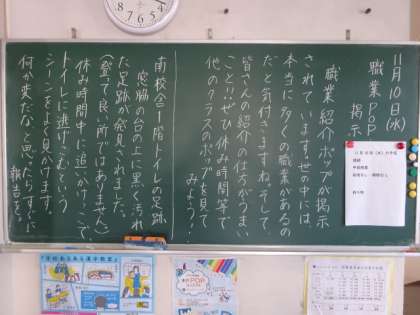 11月10日(水)
職業POP 掲示
職業紹介ポップが掲示
されています。世の中には、
本当に多くの職業があるの
だと気付きますね。そして、
皆さんの紹介の仕方がうまい
こと!!ぜひ休み時間等で
他のクラスのポップも見て
みよう!
南校舎1階トイレの足跡
窓脇の台の上に黒く汚れ
た足跡が発見されました。
(登って良い所ではありません)
休み時間中に追いかけっこで
トイレに逃げこむという
シーンをよく見かけます。
何か変だなと思ったらすぐに
報告を。